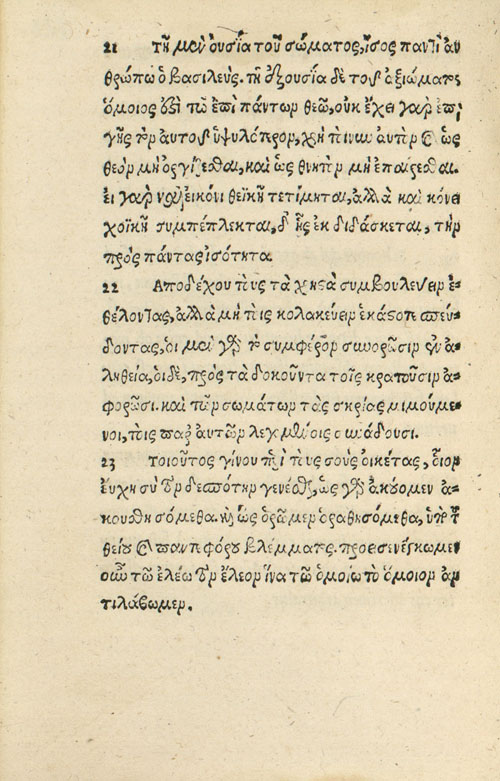 21 Τῇ μὲν οὐσίᾳ τοῦ σώματος, ἴσος παντὶ ἀν
θρώπῳ ὁ βασιλεύς. τῇ ἐξουσίᾳ δὲ τοῦ ἀξιώματος
ὅμοιος ἐστὶ τῷ ἐπὶ πάντων θεῷ, οὐκ ἔχει γὰρ ἐπὶ
γῆς τὸν αὐτοῦ ὑψηλότερον, χρὴ τοίνυν αὐτὸν καὶ ὡς
θεὸν μὴ ὀργίζεσθαι, καὶ ὡς θνητὸν μὴ ἐπαίρεσθαι.
εἰ γὰρ καὶ εἰκόνι θεϊκῇ τετίμηται, ἀλλὰ καὶ κόνει
χοϊκῇ συμπέπλεκται, δι' ἧς ἐκδιδάσκεται, τὴν
πρὸς πάντας ἰσότητα
22 Αποδέχου τοὺς τὰ χρηστὰ συμβουλεύειν ἐ-
θέλοντας, ἀλλὰ μὴ τοὺς κολακεύειν ἑκάστοτε σπεύ-
δοντας, οἱ μὲν γὰρ τὸ συμφέρον συνορῶσιν ἐν ἀ-
ληθείᾳ, οἱ δὲ, πρὸς τὰ δοκοῦντα τοῖς κρατοῦσιν ἀ-
φορῶσι. καὶ τῶν σωμάτων τὰς σκιὰς μιμούμε-
νοι, τοῖς παρ' αὐτῶν λεγομένοις συνᾴδουσι.
23 Τοιοῦτος γίνου περὶ τοὺς σοὺς οἰκέτας, οἷον
εὔχῃ σὺ τὸν δεσπότην γενέσθαι, ὡς γὰρ ἀκούομεν ἀ-
κουσθησόμεθα. καὶ ὡς ὁρῶμεν ὁραθησόμεθα, ὑπὸ τοῦ
θείου καὶ παντεφόρου βλέμματος. προεισενέγκωμεν
οὖν τῷ ἐλέῳ τὸν ἔλεον ἵνα τῷ ὁμοίῳ τὸ ὅμοιον ἀν
τιλάβωμεν.